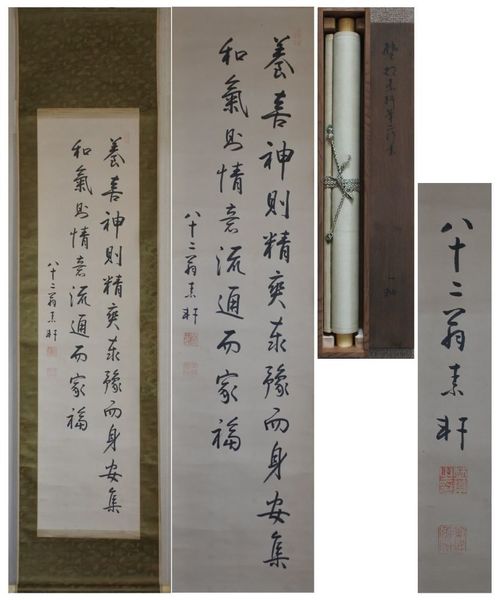 養喜神則精爽泰豫而身安集
和氣則情意流通而家福
八十二翁素軒
養喜神則精爽泰豫而身安集
和氣則情意流通而家福
八十二翁素軒
八十二翁素軒